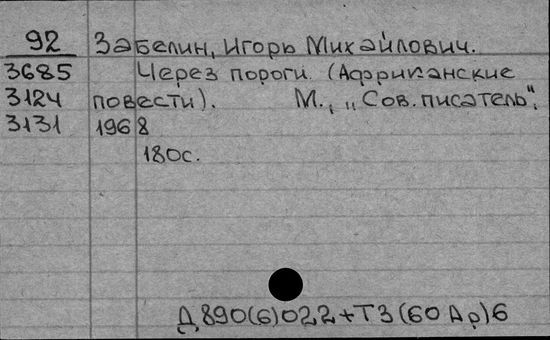 92 Забелин, Игорь Михайлович.
3685 Через пороги. (Африканские
3124 повести). М., „Сов. писатель",
3131 1968
180с.
Д890(6)022+Т3(60Ар)6